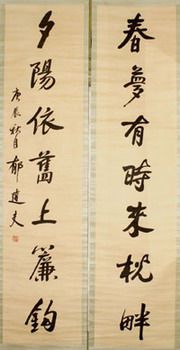 春夢有時來枕畔
夕陽依舊上簾鈎
庚辰秋月 郁達夫